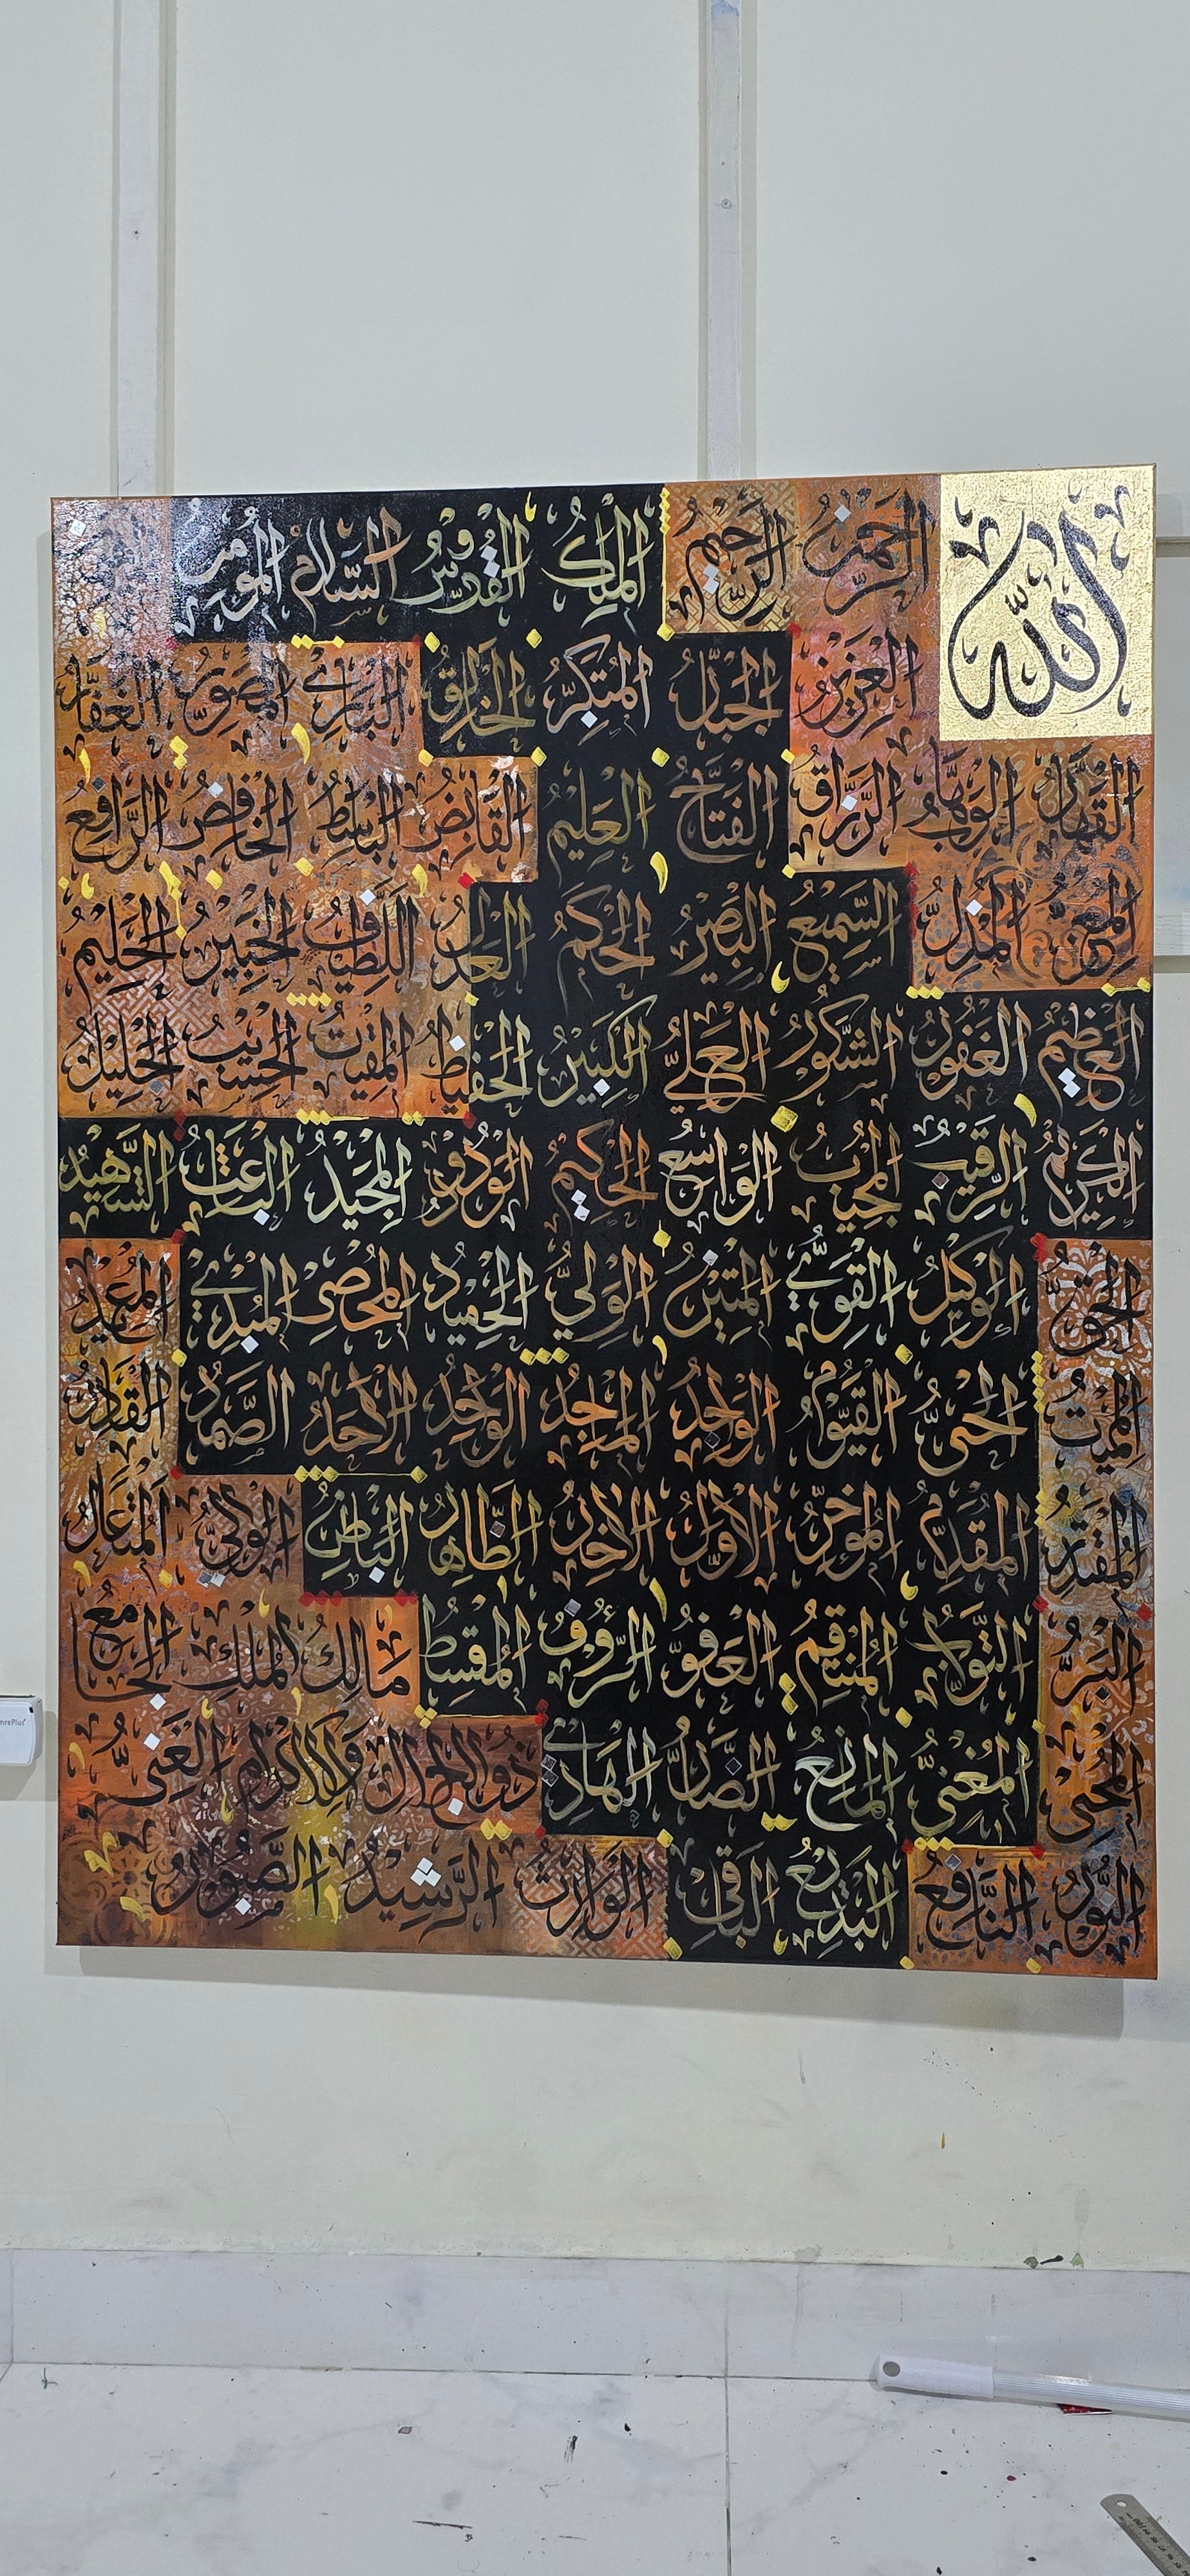 الله
الرحمن الرحيم الملك القدوس السلام المؤمن
العزيز الجبار المتكبر الخالق البارئ المصور الغفار
القهار الوهاب الرزاق الفتاح العليم القابض الباسط الخافض الرافع
المعز المذل السميع البصير الحكم العدل اللطيف الخبير الحليم
العظيم الغفور الشكور العلي الكبير الحفيظ المقيت الحسيب الجليل
الكريم الرقيب المجيب الواسع الحكيم الودود المجيد الباعث الشهيد
الحق الوكيل القوي المتين الولي الحميد المحصي المبدئ المعيد
المميت الحي القيوم الواجد الماجد الواحد الاحد الصمد القادر
المقتدر المقدم المؤخر الأول الآخر الظاهر الباطن الوالي المتعال
البر التواب المنتقم العفو الرؤوف المقسط مالك الملك الجامع
المحيي المغني المانع الضار الهادي ذو الجلال والاكرام الغني
النور النافع البديع الباقي الوارث الرشيد الصبور